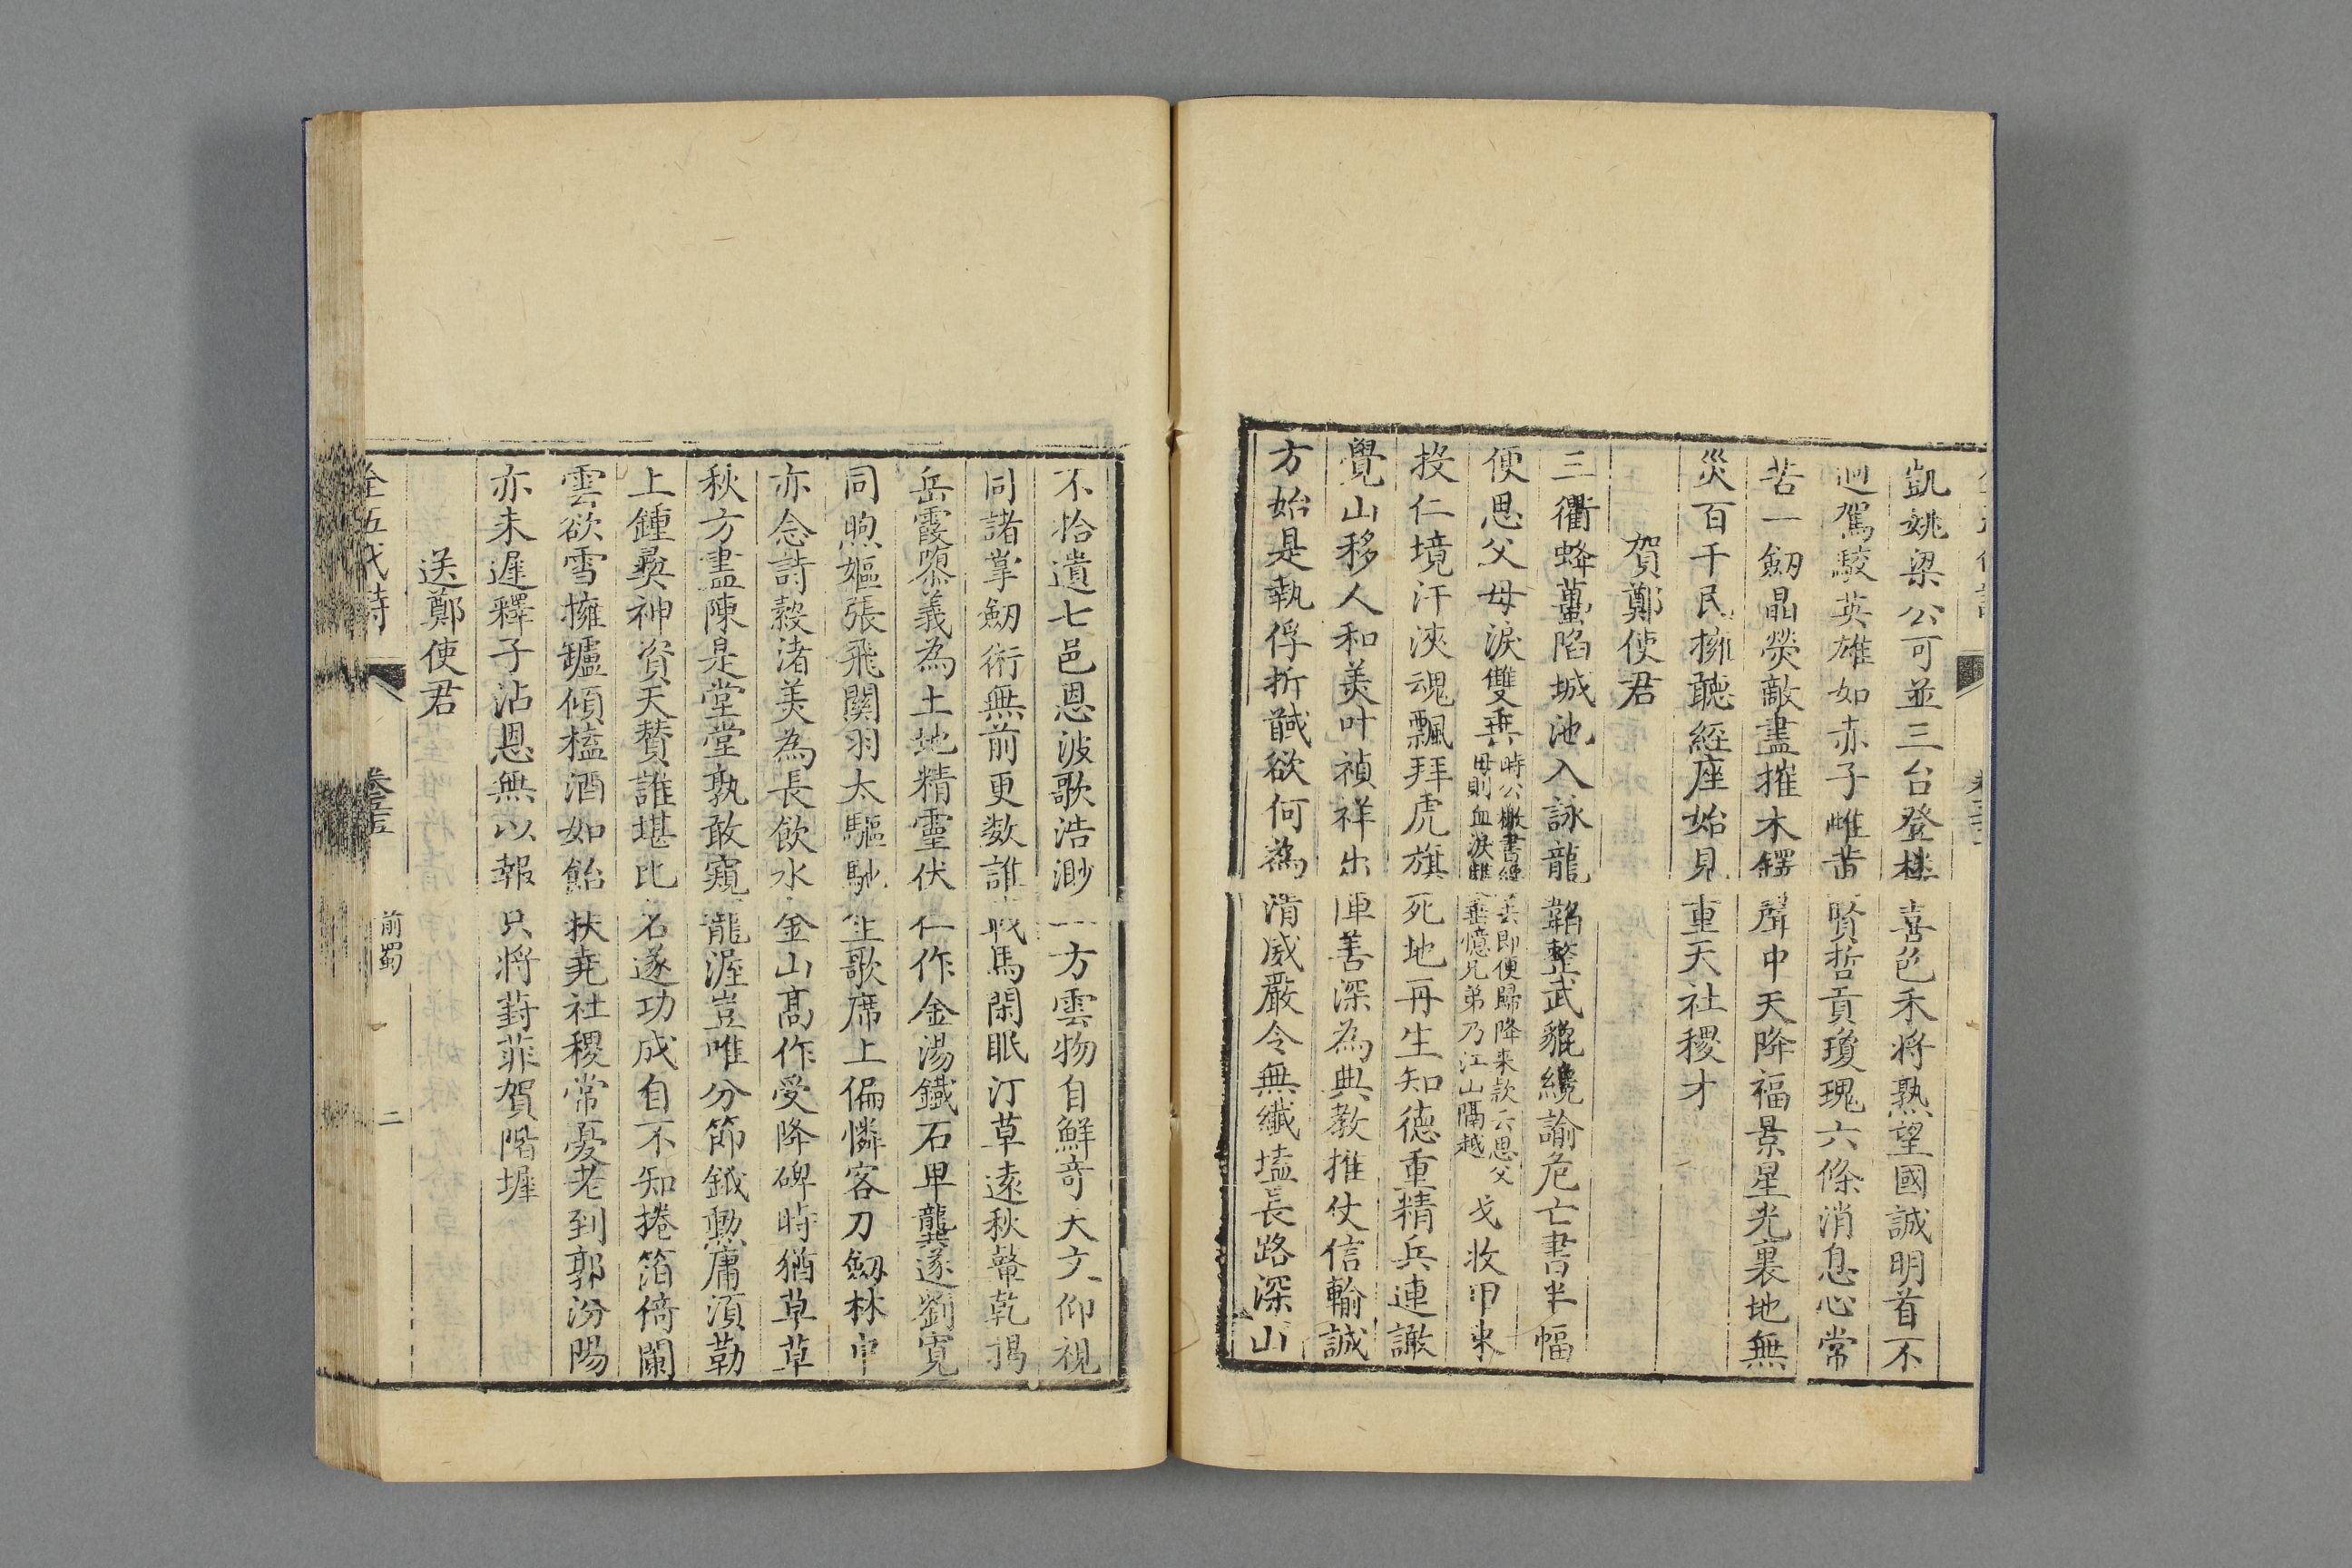 凱姚梁公可並三台登樓喜色禾將熟望國誠明首不
迴駕駿英雄如赤子雌黃賢哲貢瓊瑰六條消息心常
苦一劒晶熒敵盡摧木鐸聲中天降福景星光裏地無
災百千民擁聽經座始見重天社稷才
賀鄭使君
三衢蜂蠆陷城池入詠龍韜整武貔纔諭危亡書半幅
便思父母淚雙垂時公檄書纔去即便歸降来款云思父
母則血淚雙垂憶兄弟乃江山隔越戈收甲束
投仁境汗浹魂飄拜虎旗死地再生知德重精兵連譀
覺山移人和美叶禎祥出師善深為典教推仗信輸誠
方始是執俘折馘欲何為滑威嚴令無纖壒長路深山
不拾遺七邑恩波歌浩渺一方雲物自鮮奇天文仰視
同諸掌劒術無前更數誰戰馬閑眠汀草遠秋鼙乾揭
岳霞隳義為土地精靈伏仁作金湯鐵石卑龔遂劉寬
同煦嫗張飛關羽太驅馳笙歌席上偏憐客刀劒林中
亦念詩縠渚美為長飲水金山高作受降碑時猶草草
秋方盡陳是堂堂孰敢窺龍渥豈唯分節鉞勲庸須勒
上鍾彞神資天贊誰堪比名遂功成自不知捲箔倚闌
雲欲雪擁罏傾榼酒如飴扶堯社稷常憂老到郭汾陽
亦未遲釋子沾恩無以報只將葑菲賀階墀
送鄭使君
全五代詩
前蜀
二